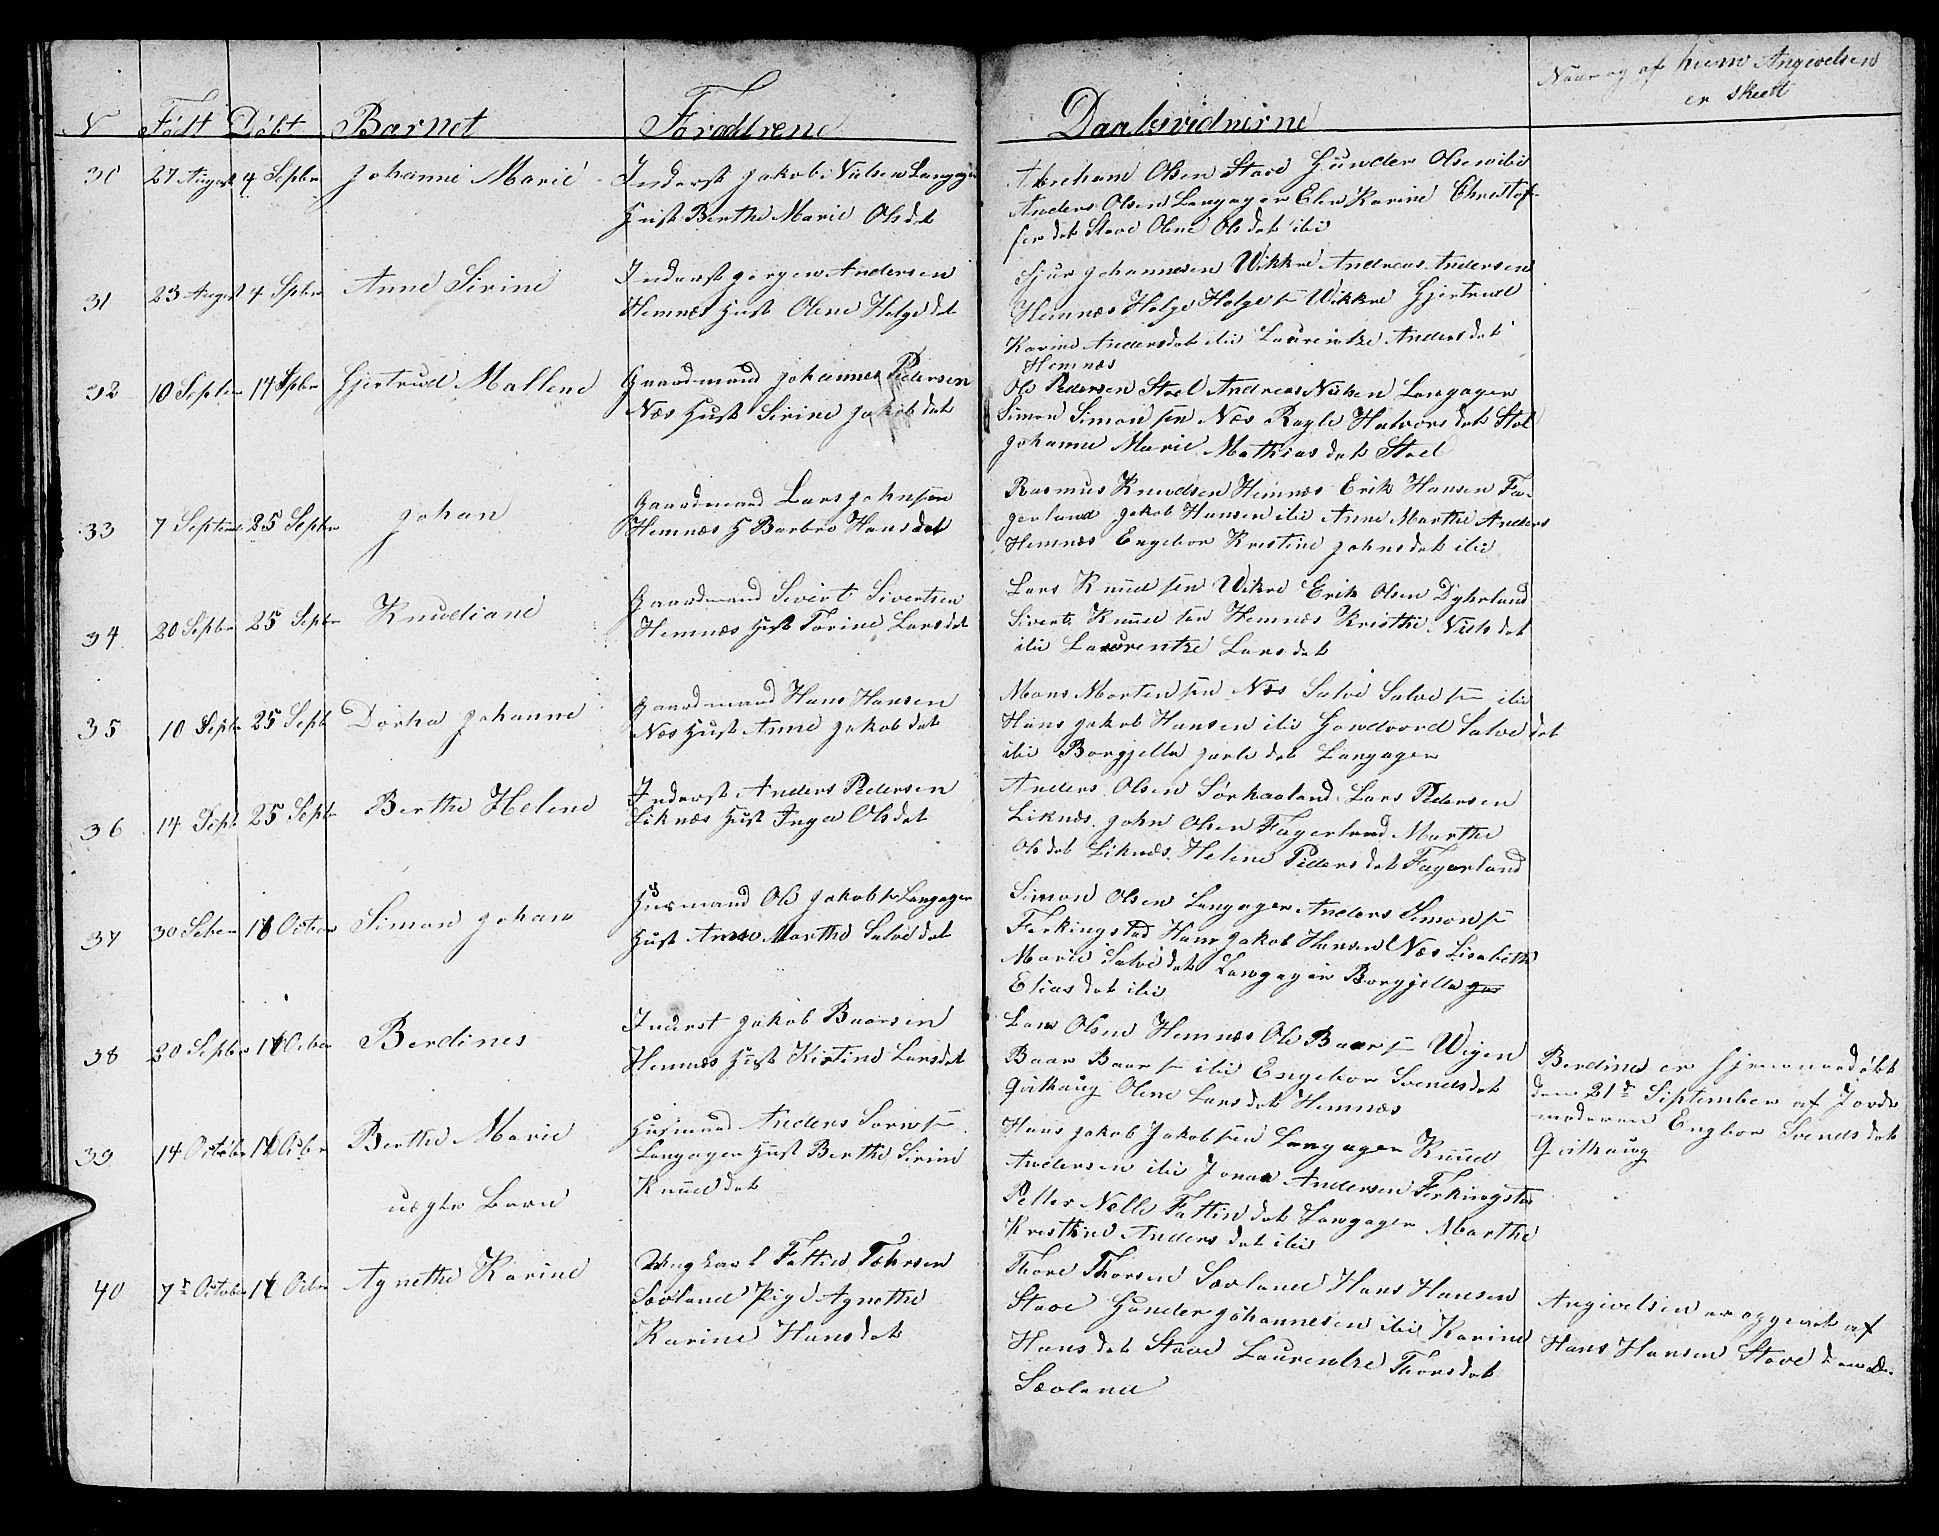 N Født Døbt Barnet Forældrene Daabsvidnerne Naar og af hvem Angivelsen
er skeet
30 27 August 4 Septbr Johanne Marie Inderst Jakob Nielsen Langager
Hust Berthe Marie Olsdat
Abreham Olsen Stave Gunder Olsen ibid
Anders Olsen Langager Elen Karine Christof-
ferdat Stave Olene Olsdat ibi
31 23 August 4 Spbr Anne Sirine Inderst Jørgen Andersen
Hemnæs Hust Olene Helgedat
Sjur Johannesen Wikkre Andreas Andersen
Hemnæs Helge Helges Wikkre Gjertrud
Karine Andersdat ibi Laurentze Andersdat
Hemnæs
32 10 Septem 14 Spbr Gjertrud Mallene Gaardmand Johannes Pedersen
Næs Hust Sirine Jakobdat
Ole Pedersen Stoel Andreas Nielsen Langager
Simon Simonsen Næs Ragle Halvorsdat Stol
Johanne Marie Mathiasdat Stoel
33 7 Septemb 25 Septbr Johan Gaardmand Lars Johnsen
Hemnæs H Barbro Hansdat
Rasmus Knudsen Hemnæs Erik Hansen Fa-
gerland Jakob Hansen ibi Anne Marthe Anders
Hemnæs Engebor Kristine Johnsdat ibi
34 20 Septbr 25 Septbr Knudiane Gaardmand Sivert Sivertsen
Hemnæs Hust Torine Larsdat
Lars Knudsen Wikre Erik Olsen Dyhrland
Sivert Knudsen Hemnæs Kristhi Nielsdat
ibi Laurentze Larsdat
35 10 Septbr 25 Septb Dortea Johanne Gaardmand Hans Hansen
Næs Hust Anne Jakobdat
Mons Mortensen Næs Salve Salves ibi
Hans Jakob Hansen ibi Gondvord Salvedat
ibi Borgjella Jarledat Langager
36 14 Septb 25 Septbr Berthe Helene Inderst Anders Pedersen
Liknæs Hust Inga Olsdat
Anders Olsen Sørhaaland Lars Pedersen
Liknæs John Olsen Fagerland Marthe
Olsdat Liknæs Helene Pedersdat Fagerland
37 30 Octobr Simon Johan Husmand Ole Jakobs Langager
Hust Anne Marthe Salvedat
Simon Olsen Langager Anders Simons
Ferkingstad Hans Jakob Hansen Næs Lisabeth
Marie Salvedat Langager Borgjella
Eliasdat ibi
38 20 Septbr 16 Octobr Berdines Inderst Jakob Baarsen
Hemnæs Hust Kirstine Larsdat
Lars Olsen Hemnæs Ole Baars Wigen
Baar Baars ibi Engebor Svendsdat
Qvilhaug Olene Larsdat Hemnæs
Berdines er hjemmedøbt
den 21de September af Jorde-
moderen Engbor Svendsdat
Qvilhaug
39 14 October 16 Octbr Berthe Marie
uægte Barn
Husmand Anders Sørens
Langager Hust Berthe Sirine
Knuddat
Hans Jakob Jakobsen Langager Knud
Andersen ibi Jonas Andersen Ferkingstad
Petter Nelle Fattindat Langager Marthe
Kristine Andersdat ibi
40 7de October 16 Octbr Agnethe Karine Ungkarl Fattin Tohrsen
Sævland Pige Agnethe
Karine Hansdat
Thore Thorsen Sævland Hans Hansen
Stave Gunder Johannesen ibi Karine
Hansdat Stave Laurentze Thorsdat
Sævland
Angivelsen er opgivet af
Hans Hansen Stave